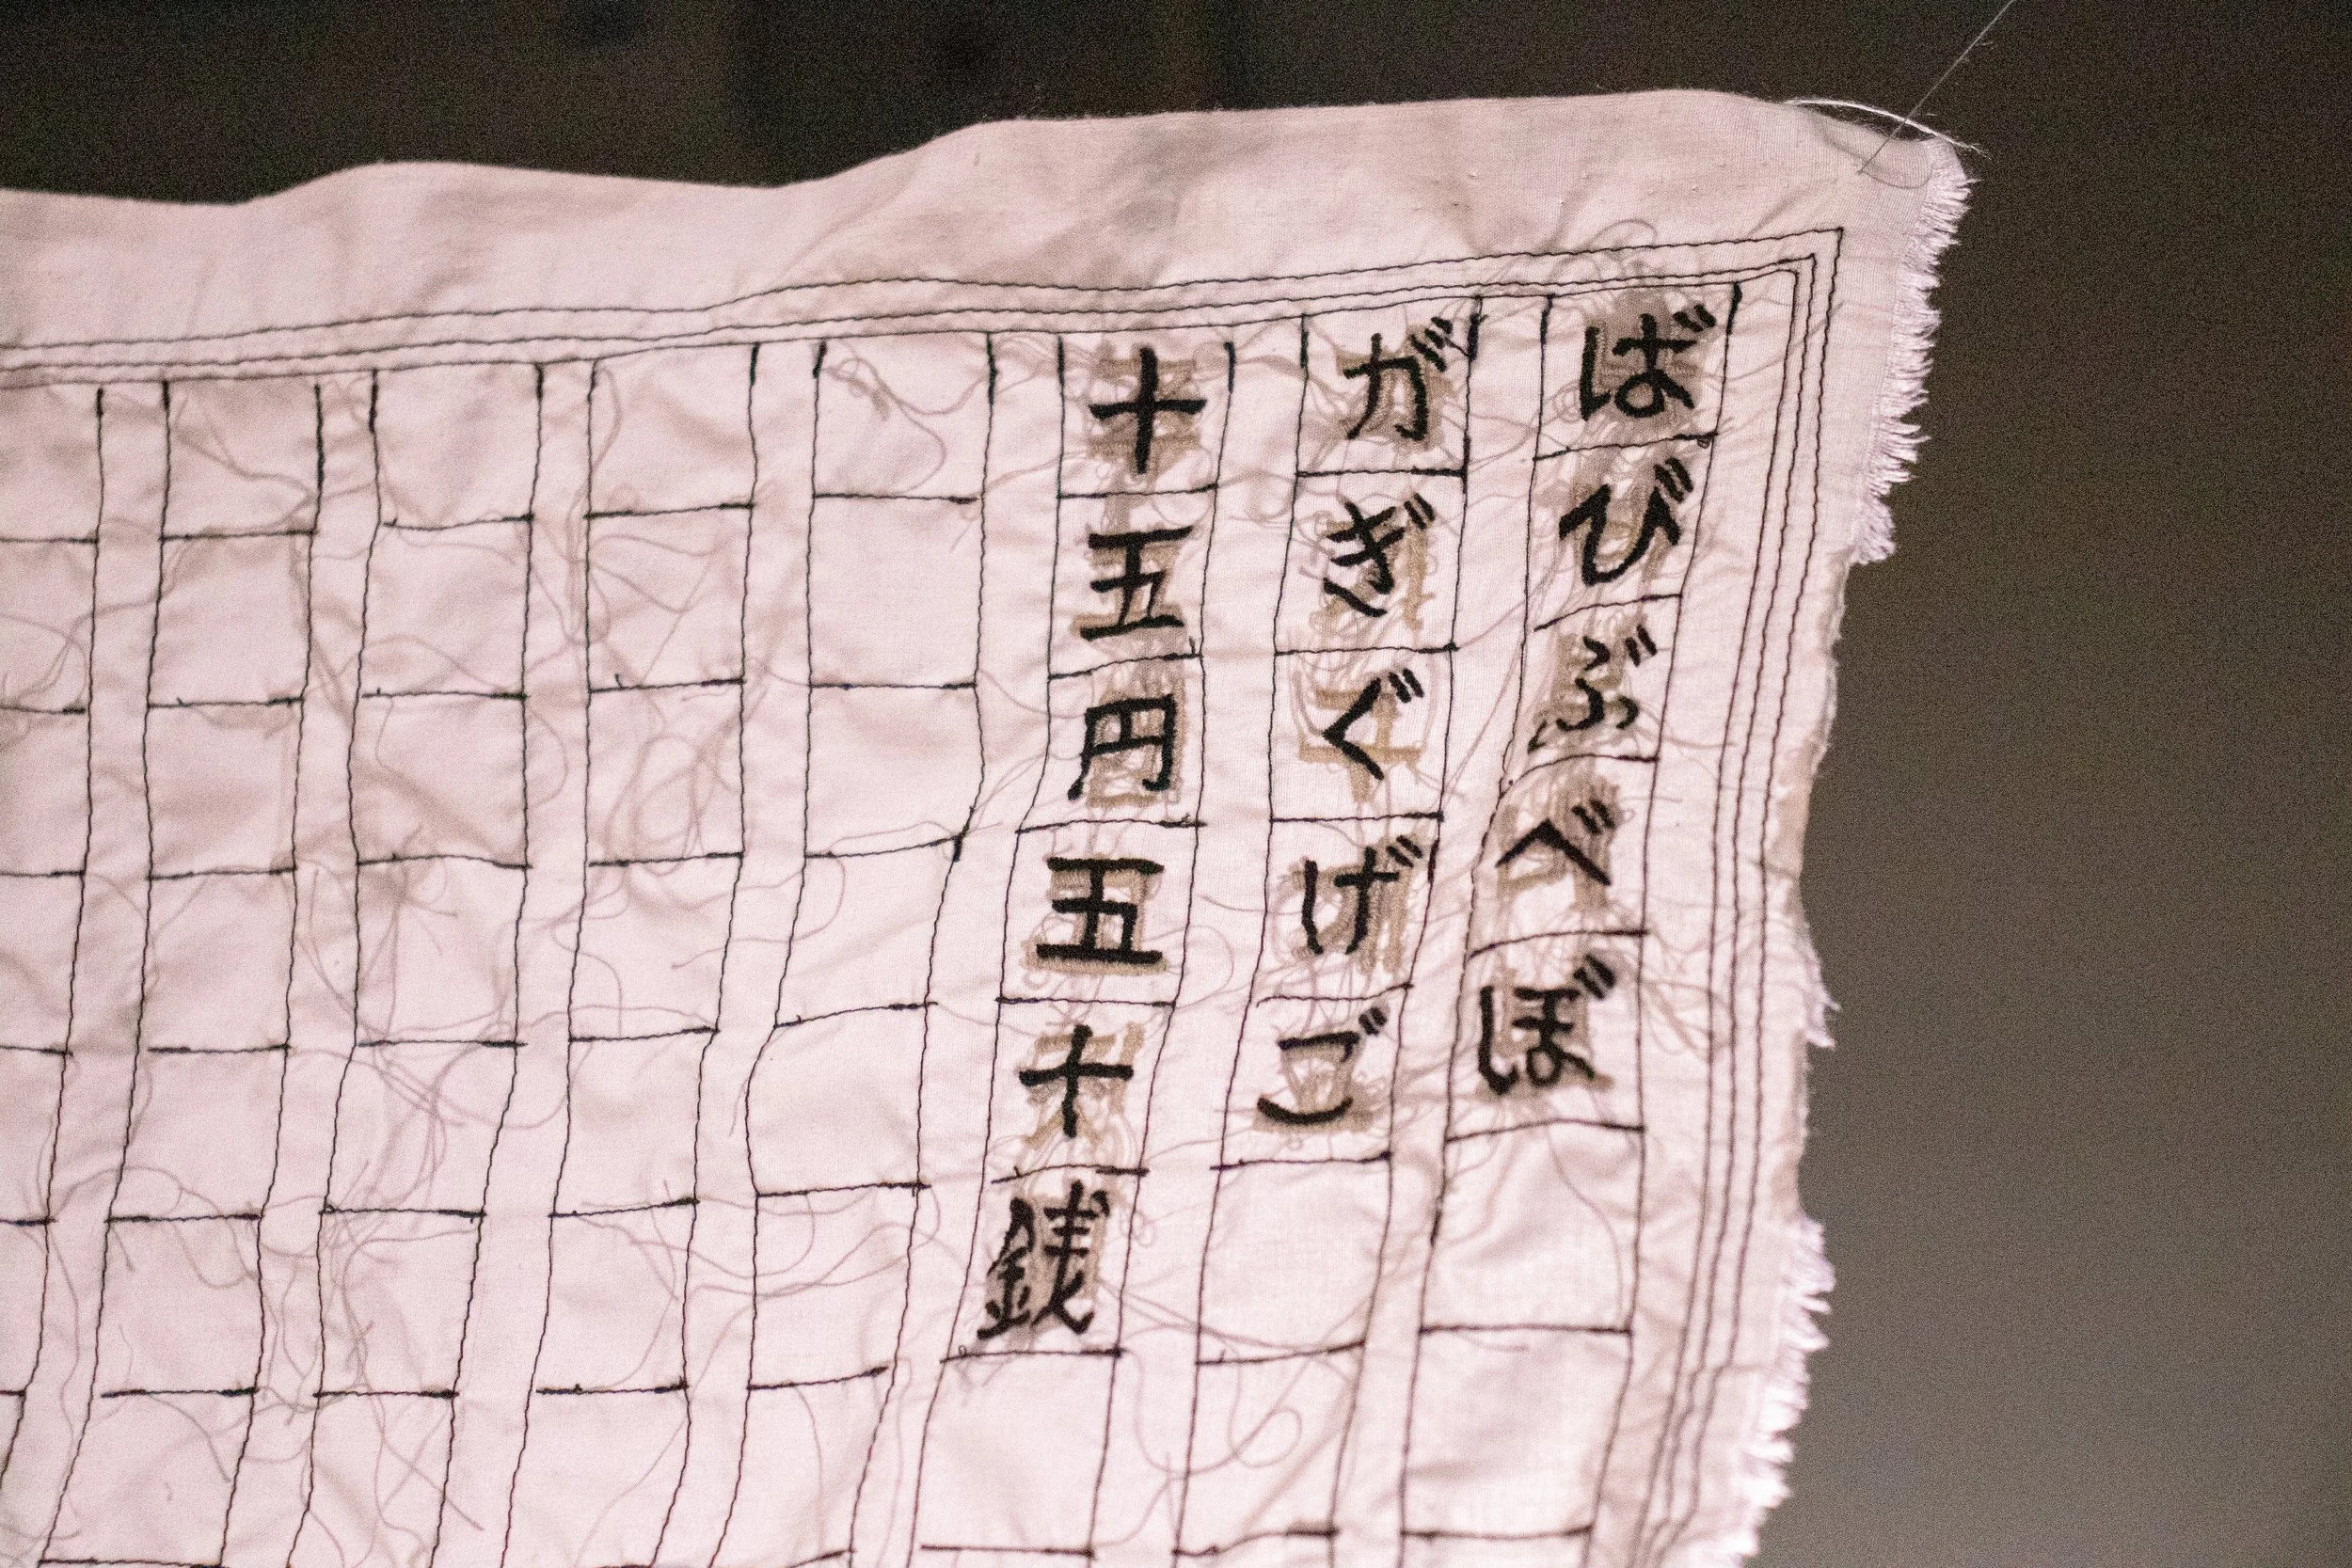 ばびぶべぼ
がぎぐげご
十五円五十銭